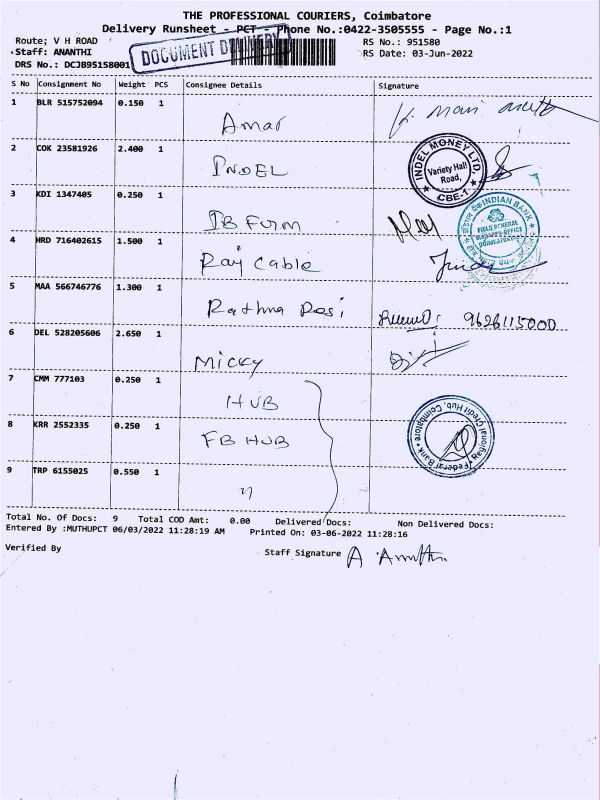 THE PROFESSIONAL COURIERS, Coimbatore
Delivery Runsheet - PCT - Phone No.:0422-3505555 - Page No.:1
Route; V H ROAD
RS No.: 951580
Staff: ANANTHI
RS Date: 03-Jun-2022
DRS No.: DCJB95158001
DOCUMENT DELIVERY
S No Consignment No Weight PCS Consignee Details Signature
1 BLR 515752094 0.150 1 Amar
2 COK 23581926 2.400 1 INDEL
INDEL MONEY LTD,
Variety Hall
Road,
CBE-1
3 KDI 1347405 0.250 1 IB Form
INDIAN BANK
4 HRD 716402615 1.500 1 Raj Cable
5 MAA 566746776 1.300 1 Rathna Resi
9626115000
6 DEL 528205606 2.650 1 Micky
7 CMM 777103 0.250 1 HUB
8 KRR 2552335 0.250 1 FB HUB
Federal Bank
Regional Credit Hub, Coimbatore
9 TRP 6155025 0.550 1 "
Total No. Of Docs: 9 Total COD Amt: 0.00 Delivered Docs: Non Delivered Docs:
Entered By :MUTHUPCT 06/03/2022 11:28:19 AM Printed On: 03-06-2022 11:28:16
Verified By
Staff Signature